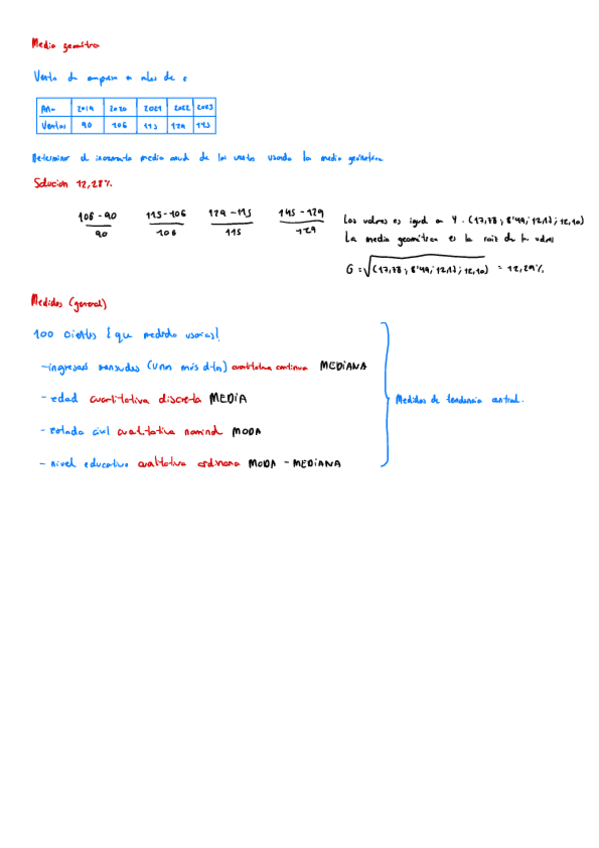 Media geométrica
Venta de empresa en miles de €
Año 2019 2020 2021 2022 2023
Ventas 90 106 115 129 145
Determinar el incremento medio anual de las ventas usando la media geométrica
Solución 12,28%
106 - 90 / 90   115 - 106 / 106   129 - 115 / 115   145 - 129 / 129
Los valores es igual en 4. (17,78; 8'49; 12,17; 12,40)
La media geométrica es la raiz de los valores
G = √(17,78; 8'49; 12,17; 12,40) = 12,29%
Medidas (general)
100 clientes ¿que medida usarias?
- ingresos mensuales (unos más altos) cuantitativa continua MEDIANA
- edad cuantitativa discreta MEDIA
- estado civil cualitativa nominal MODA
- nivel educativo cualitativa ordinaria MODA - MEDIANA
Medidas de tendencia central.